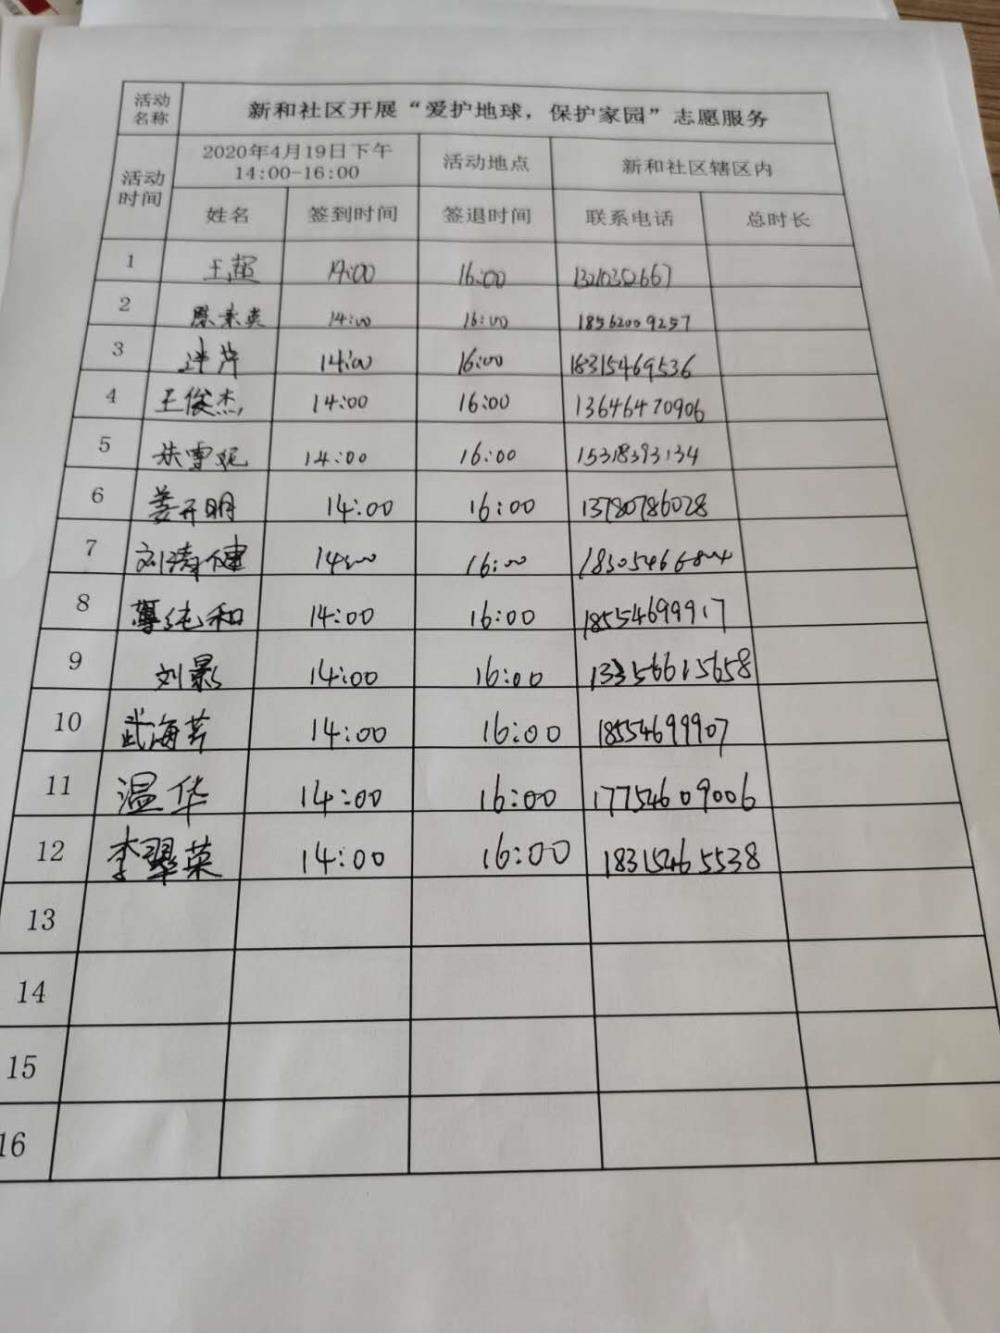 活动名称 新和社区开展“爱护地球，保护家园”志愿服务
活动时间 2020年4月19日下午 14:00-16:00 活动地点 新和社区辖区内
姓名 签到时间 签退时间 联系电话 总时长
1 王超 14:00 16:00
2 14:00 16:00 18562009257
3 萍 14:00 16:00 18315469536
4 王俊杰 14:00 16:00 13646470906
5 朱雪妮 14:00 16:00 15318393134
6 姜开明 14:00 16:00 13780786028
7 刘涛健 14:00 16:00
8 纯和 14:00 16:00 18554699917
9 刘影 14:00 16:00 13356615658
10 武海芳 14:00 16:00 18554699907
11 温华 14:00 16:00 17754609006
12 李翠英 14:00 16:00 18315465538
13
14
15
16